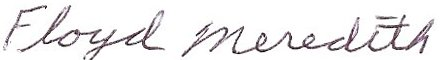 Floyd Meredith